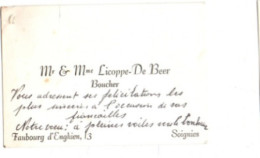 Mr & Mme Licoppe-De Beer
Boucher
Vous adressent ses félicitations les
plus sincères à l'occasion de vos
fiancailles
Notre vœu: à pleines voiles vers le
Faubourg d'Enghien, 13 Soignies